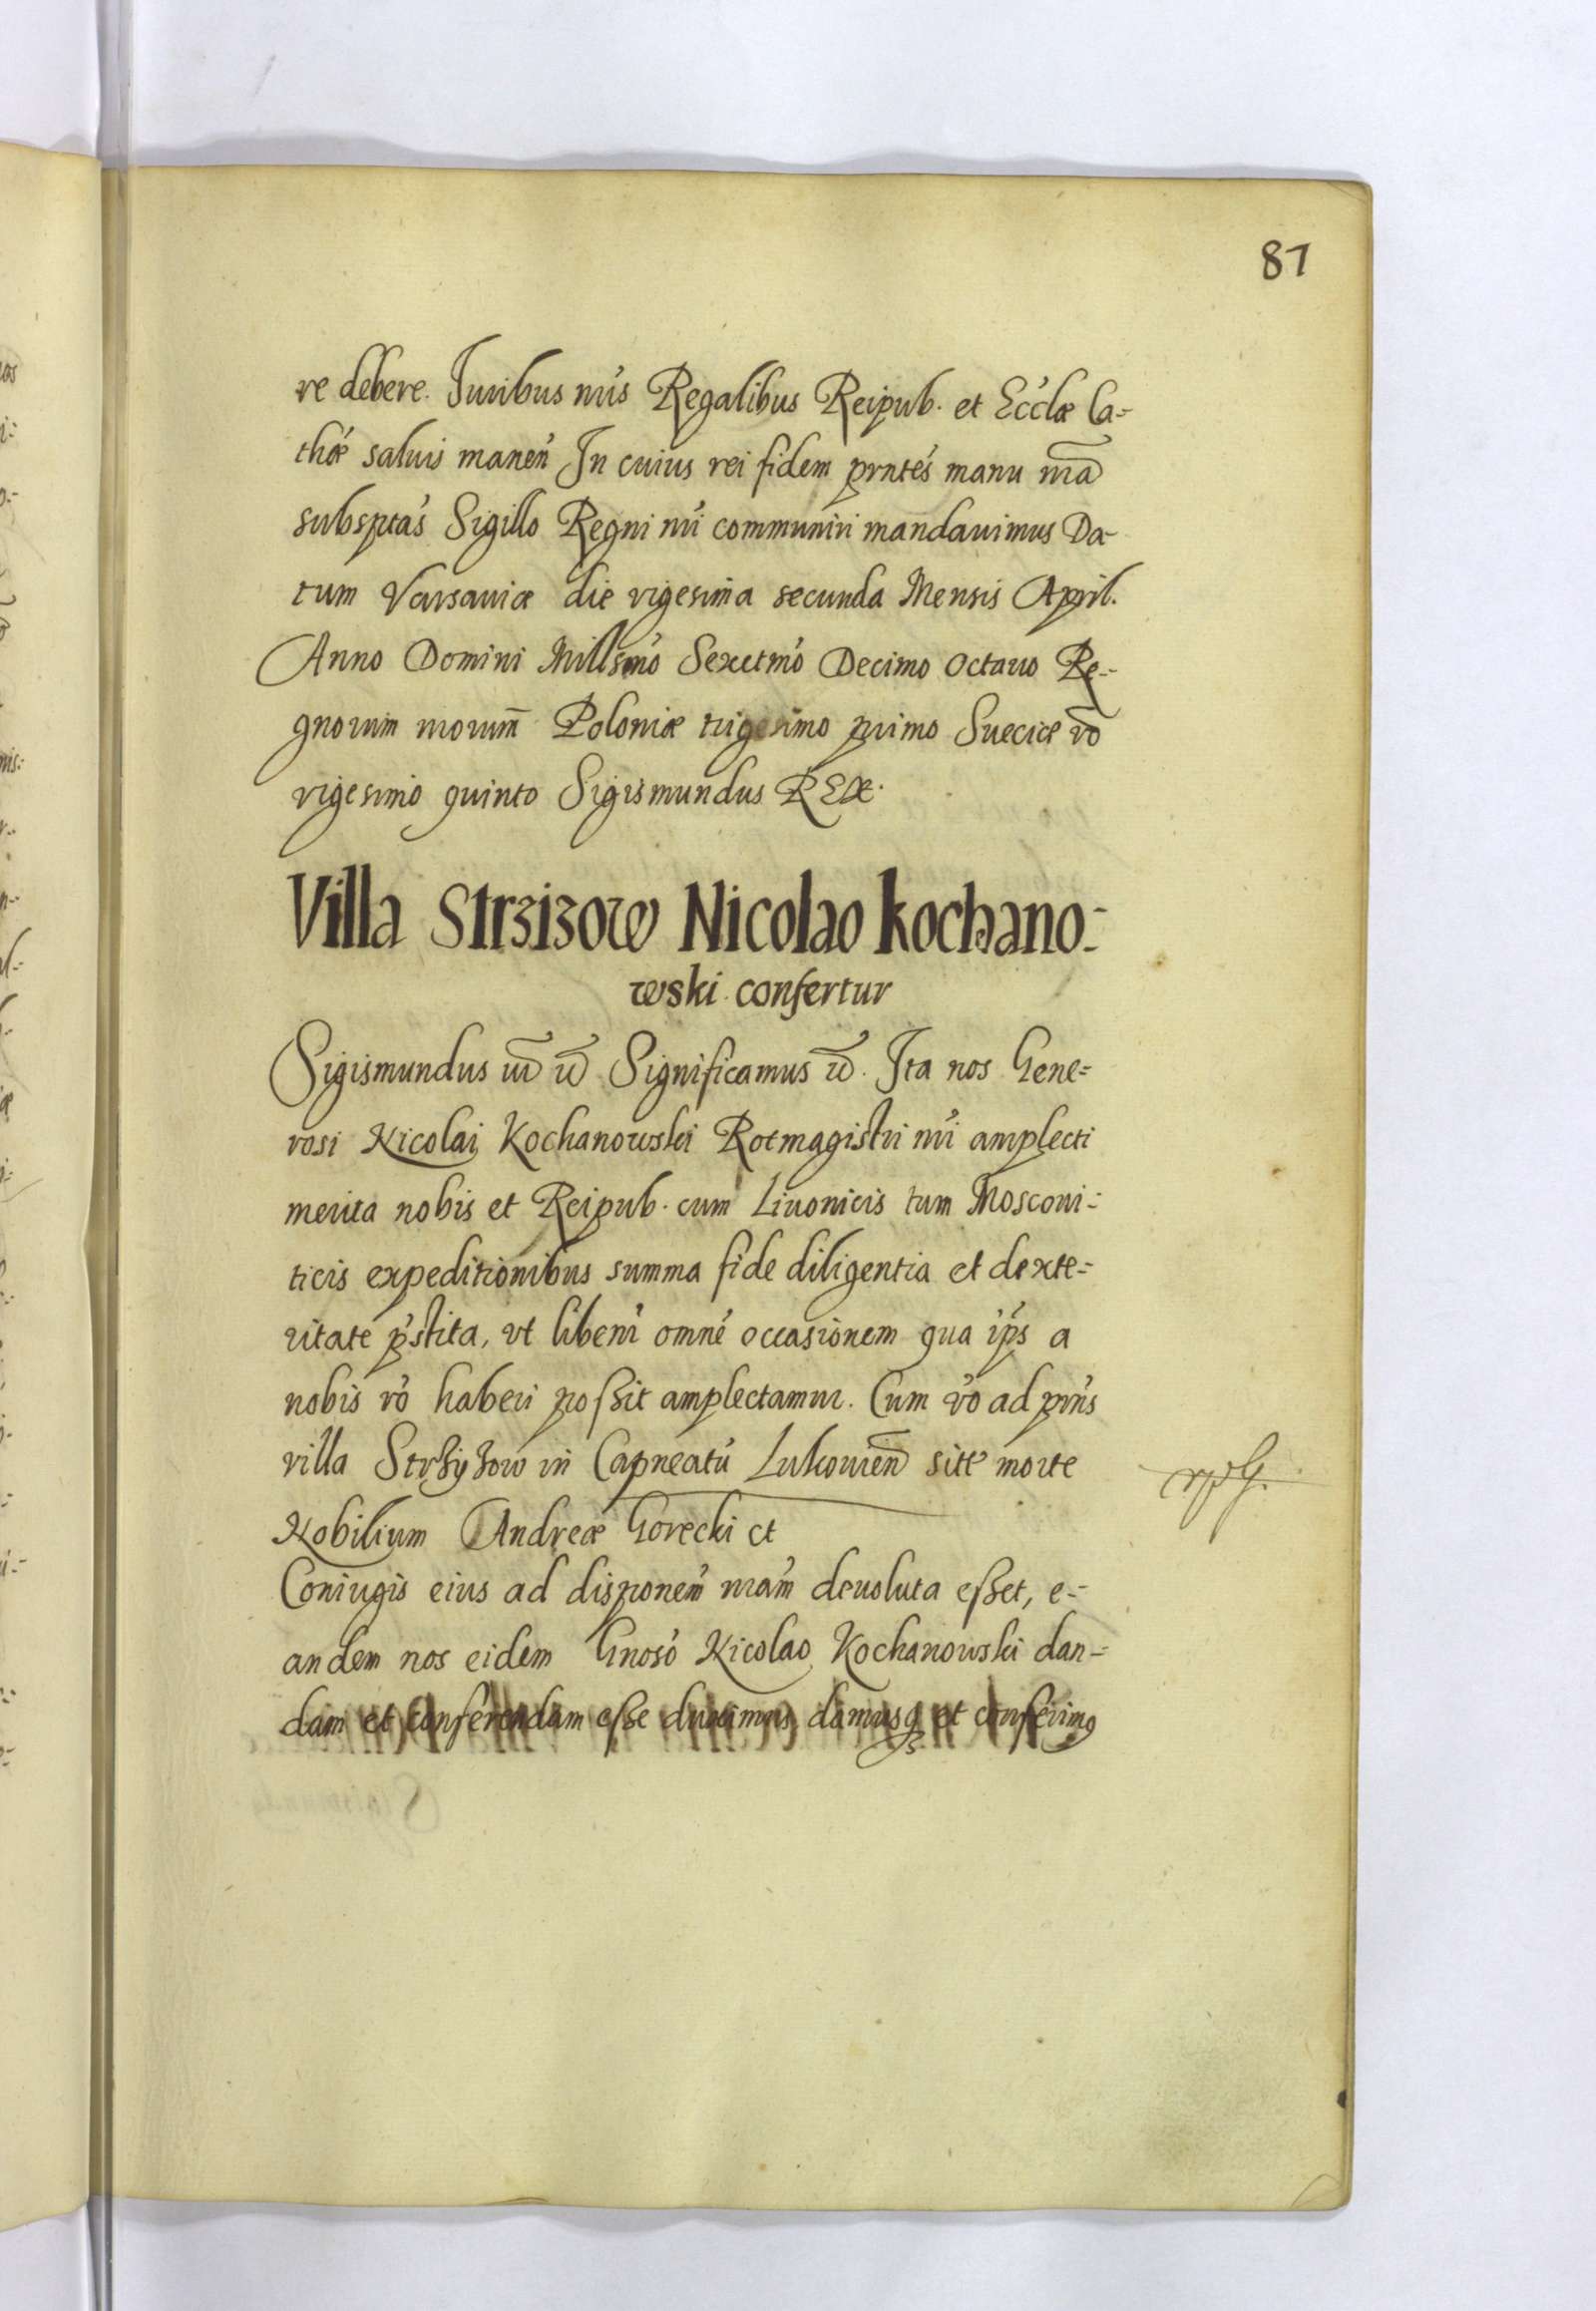 87
re debere. Iuribus nris Regalibus Reipub. et Ecclæ Ca-
thæ saluis manen In cuius rei fidem prntes manu nra
subsptas Sigillo Regni nri communiri mandauimus Da-
tum Varsauiæ die vigesima secunda Mensis April.
Anno Domini Millsmo Sexctmo Decimo octauo Re-
gnorum nrorum Poloniæ trigesimo primo Sueciæ vo
vigesimo quinto Sigismundus REX.
Villa Strzizow Nicolao Kochano-
wski confertur
Sigismundus Significamus Ita nos Gene-
rosi Nicolai Kochanowski Rotmagistri nri amplecti
merita nobis et Reipub. cum Liuonicis tum Mosconi-
ticis expeditionibus summa fide diligentia et dexte-
ritate pstita, vt libenr omne occasionem qua ips a
nobis ro haberi poßit amplectamur. Cum vo ad prns
villa Strzyzow in Capneatu Lukouien site morte
Nobilium Andreæ Gorecki et
Coniugis eius ad disponem nram deuoluta eßet, e-
andem nos eidem Gnoso Nicolao Kochanowski dan-
dam et conferendam eße duximus damusq et conferimq